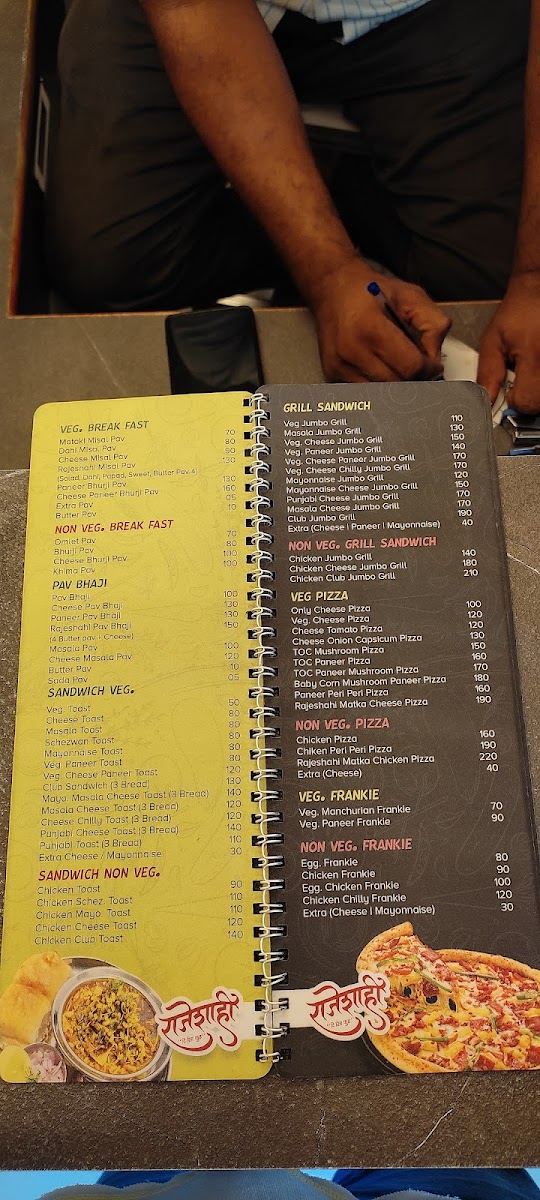 VEG. BREAK FAST
Mataki Misal Pav 70
Dahi Misal Pav 80
Cheese Misal Pav 90
Rajeshahi Misal Pav 130
(Salad, Dahi, Papad, Sweet, Butter Pav 4)
Paneer Bhurji Pav 130
Cheese Paneer Bhurji Pav 160
Extra Pav 05
Butter Pav 10
NON VEG. BREAK FAST
Omlet Pav 70
Bhurji Pav 80
Cheese Bhurji Pav 100
Khima Pav 100
PAV BHAJI
Pav Bhaji 100
Cheese Pav Bhaji 130
Paneer Pav Bhaji 130
Rajeshahi Pav Bhaji 150
(4 Butter pav + Cheese)
Masala Pav 100
Cheese Masala Pav 120
Butter Pav 10
Sada Pav 05
SANDWICH VEG.
Veg. Toast 50
Cheese Toast 80
Masala Toast 80
Schezwan Toast 80
Mayonnaise Toast 80
Veg. Paneer Toast 80
Veg. Cheese Paneer Toast 120
Club Sandwich (3 Bread) 130
Mayo. Masala Cheese Toast (3 Bread) 140
Masala Cheese Toast (3 Bread) 120
Cheese Chilly Toast (3 Bread) 120
Punjabi Cheese Toast (3 Bread) 140
Punjabi Toast (3 Bread) 110
Extra Cheese / Mayonnaise 30
SANDWICH NON VEG.
Chicken Toast 90
Chicken Schez. Toast 110
Chicken Mayo. Toast 110
Chicken Cheese Toast 120
Chicken Club Toast 140
राजेशाही
GRILL SANDWICH
Veg Jumbo Grill 110
Masala Jumbo Grill 130
Veg. Cheese Jumbo Grill 150
Veg. Paneer Jumbo Grill 140
Veg. Cheese Paneer Jumbo Grill 170
Veg. Cheese Chilly Jumbo Grill 170
Mayonnaise Jumbo Grill 120
Mayonnaise Cheese Jumbo Grill 150
Punjabi Cheese Jumbo Grill 170
Masala Cheese Jumbo Grill 170
Club Jumbo Grill 190
Extra (Cheese | Paneer | Mayonnaise) 40
NON VEG. GRILL SANDWICH
Chicken Jumbo Grill 140
Chicken Cheese Jumbo Grill 180
Chicken Club Jumbo Grill 210
VEG PIZZA
Only Cheese Pizza 100
Veg. Cheese Pizza 120
Cheese Tomato Pizza 120
Cheese Onion Capsicum Pizza 130
TOC Mushroom Pizza 150
TOC Paneer Pizza 160
TOC Paneer Mushroom Pizza 170
Baby Corn Mushroom Paneer Pizza 180
Paneer Peri Peri Pizza 160
Rajeshahi Matka Cheese Pizza 190
NON VEG. PIZZA
Chicken Pizza 160
Chiken Peri Peri Pizza 190
Rajeshahi Matka Chicken Pizza 220
Extra (Cheese) 40
VEG. FRANKIE
Veg. Manchurian Frankie 70
Veg. Paneer Frankie 90
NON VEG. FRANKIE
Egg. Frankie 80
Chicken Frankie 90
Egg. Chicken Frankie 100
Chicken Chilly Frankie 120
Extra (Cheese | Mayonnaise) 30
राजेशाही